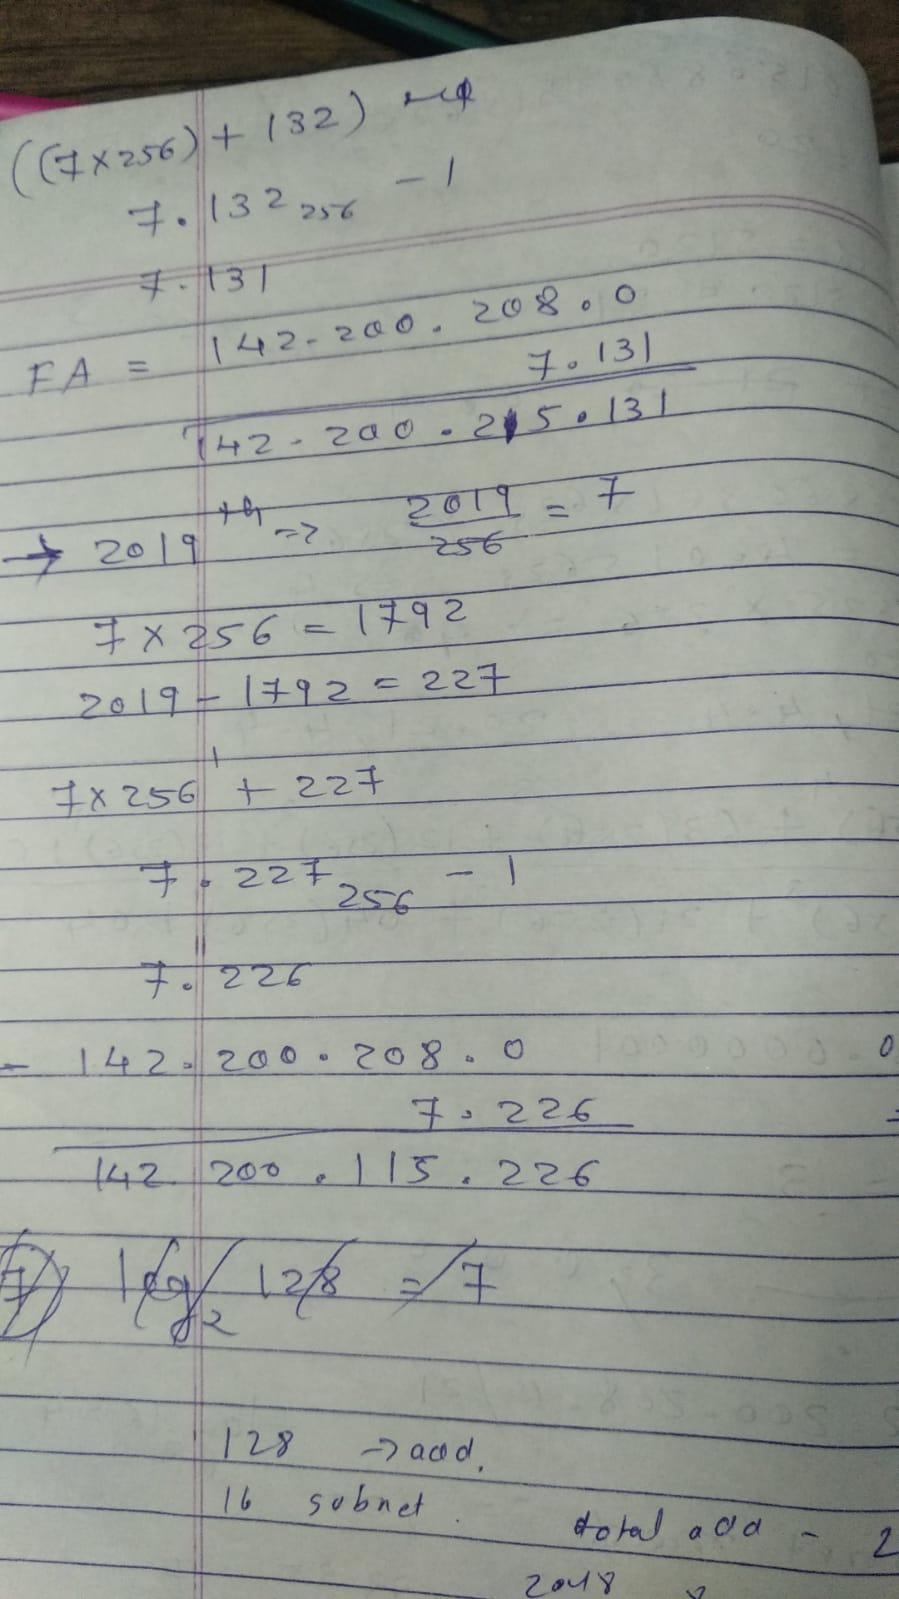 ((7×256)+132)
7.132 256 - 1
7.131
FA = 142.200.208.0
7.131
142.200.215.131
→ 2019th => 2019/256 = 7
7 × 256 = 1792
2019 - 1792 = 227
7×256^1 + 227
7.227 256 - 1
7.226
- 142.200.208.0
7.226
142.200.115.226
7) log2 128 = 7
128 → add.
16 subnet.
total add - 2
2048